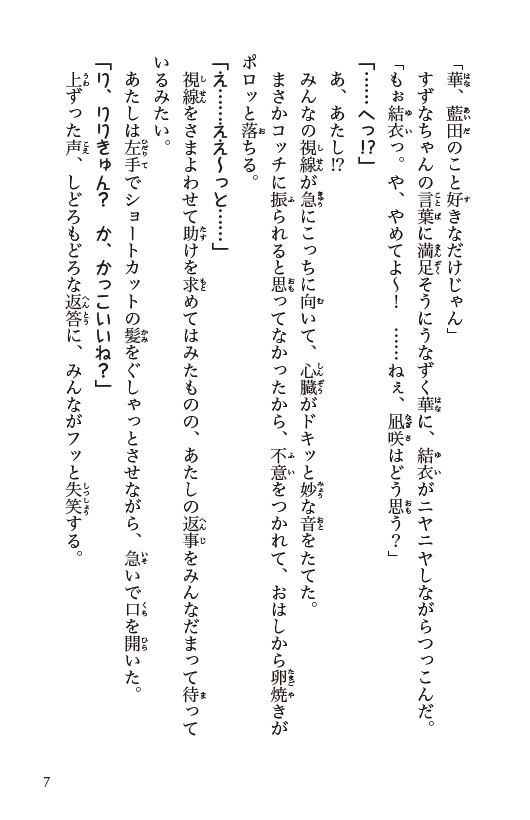 「華、藍田のこと好きなだけじゃん」
すずなちゃんの言葉に満足そうにうなずく華に、結衣がニヤニヤしながらつっこんだ。
「もぉ結衣っ。や、やめてよ〜！　……ねぇ、凪咲はどう思う？」
「……へっ!?」
あ、あたし!?
みんなの視線が急にこっちに向いて、心臓がドキッと妙な音をたてた。
まさかコッチに振られると思ってなかったから、不意をつかれて、おはしから卵焼きが
ポロッと落ちる。
「え……ええ〜っと……」
視線をさまよわせて助けを求めてはみたものの、あたしの返事をみんなだまって待って
いるみたい。
あたしは左手でショートカットの髪をぐしゃっとさせながら、急いで口を開いた。
「り、りりきゅん？　か、かっこいいね？」
上ずった声、しどろもどろな返答に、みんながフッと失笑する。
7